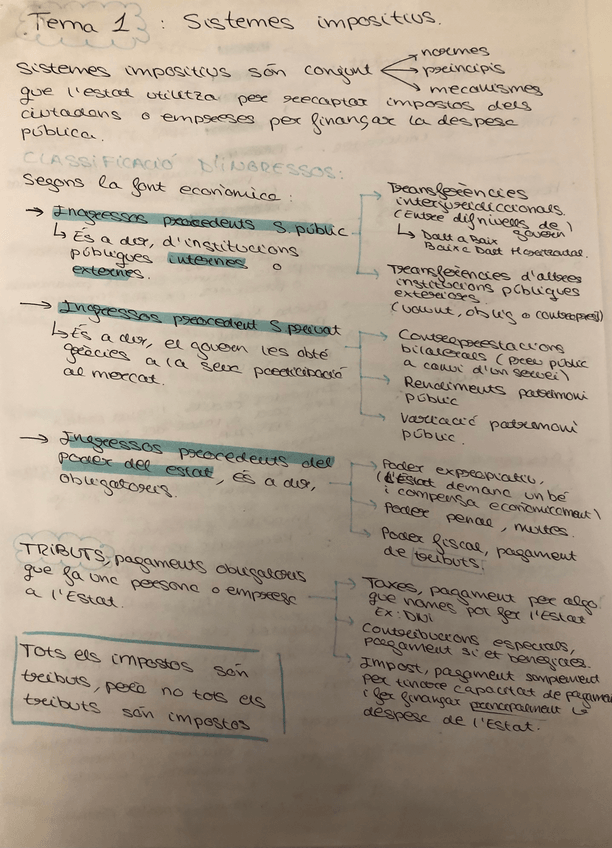 Tema 1 : Sistemes impositius.
Sistemes impositius són conjunt
normes
principis
mecanismes
que l'estat utilitza per recaptar impostos dels
ciutadans o empreses per finançar la despesa
pública.
CLASSIFICACIÓ D'INGRESSOS:
Segons la font econòmica:
→ Ingressos procedents S. públic
↳ És a dir, d'institucions
públiques internes o
externes.
Transferències
interjurisdiccionals.
(Entre dif nivells de
govern)
↳ Dalt a Baix
Baix a Dalt Horitzontal.
Transferències d'altres
institucions públiques
exteriors.
(volunt, oblig o contrapres)
→ Ingressos procedent S privat
↳ És a dir, el govern les obté
gràcies a la seva participació
al mercat.
Contraprestacions
bilaterals (preu públic
a canvi d'un servei)
Rendiments patrimoni
públic
Variació patrimoni
públic.
→ Ingressos procedents del
poder del estat, és a dir,
obligatoris.
Poder expropiatiu,
(L'Estat demana un bé
i compensa econòmicament)
Poder penal, multes.
Poder fiscal, pagament
de tributs.
TRIBUTS, pagaments obligatoris
que fa una persona o empresa
a l'Estat.
Taxes, pagament per algo
que només pot fer l'Estat
Ex: DNI
Contribucions especials,
pagament si et beneficies.
Impost, pagament simplement
per tindre capacitat de pagament
i fer finançar principalment la
despesa de l'Estat.
Tots els impostos són
tributs, però no tots els
tributs són impostos